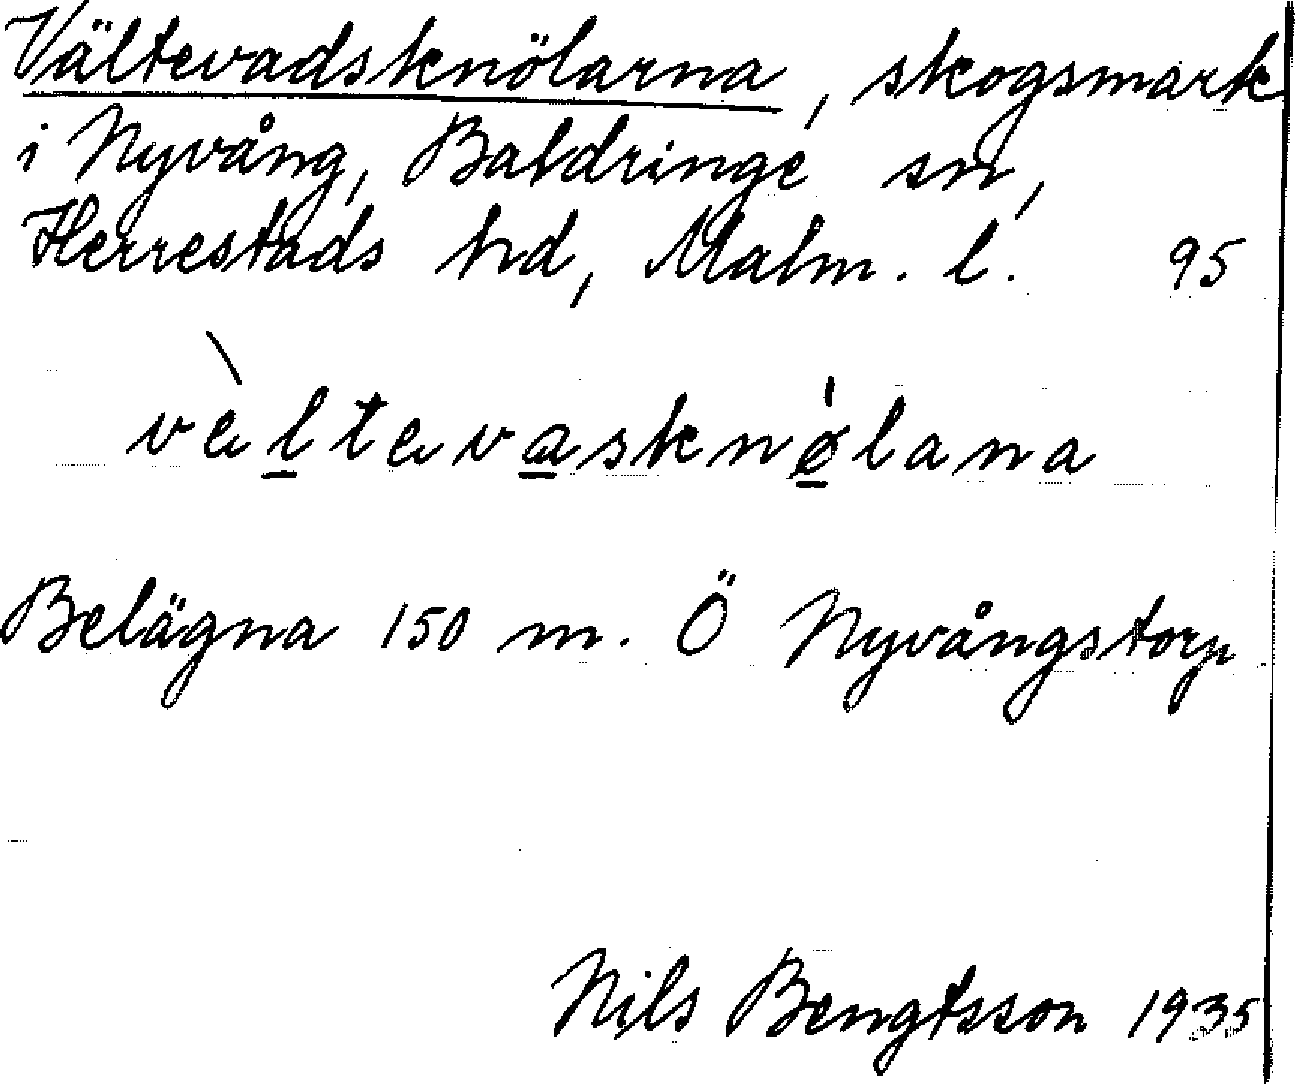 Vältevadsknölarna, skogsmark
i Nyvång, Baldringe sn,
Herrestads hd, Malm. l. 95
vèltevasknølana
Belägna 150 m. Ö Nyvångstorp
Nils Bengtsson 1935